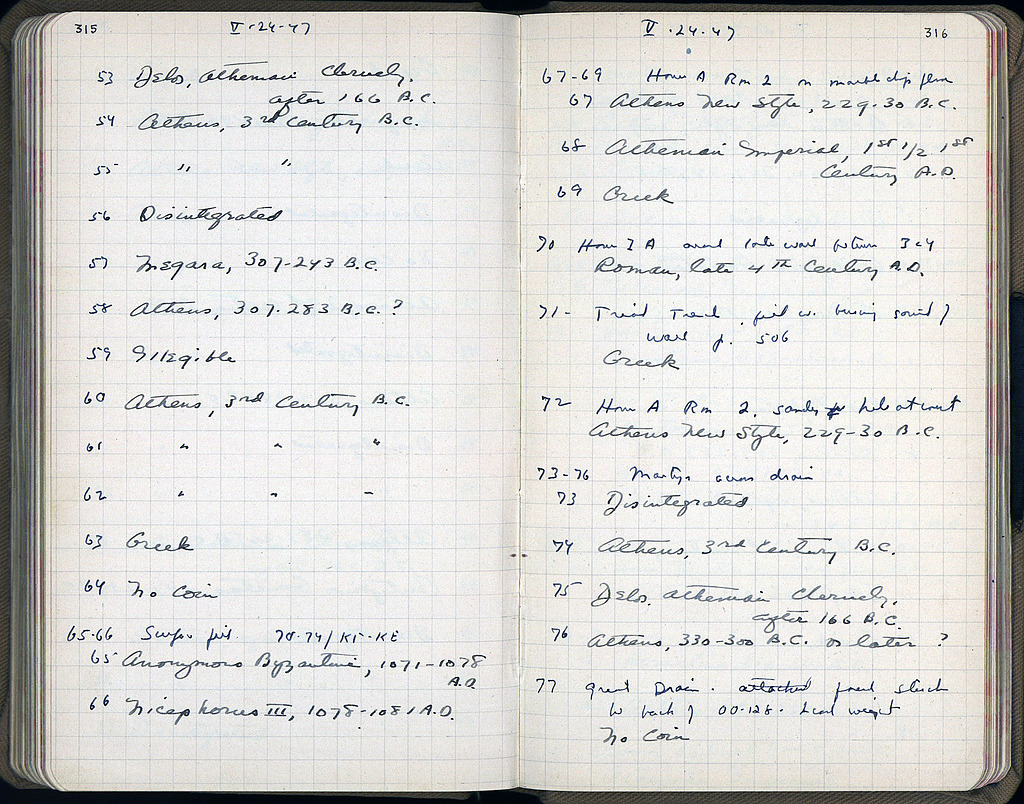 315
V·24·47
53 Delos, Athenian Cleruchy,
after 166 B.C.
54 Athens, 3rd Century B.C.
55 " "
56 Disintegrated
57 Megara, 307-243 B.C.
58 Athens, 307-283 B.C. ?
59 Illegible
60 Athens, 3rd Century B.C.
61 " " "
62 " " "
63 Greek
64 No Coin
65-66 Surface fill 70-74/ΚΓ-ΚΕ
65 Anonymous Byzantine, 1071-1078
A.D.
66 Nicephorus III, 1078-1081 A.D.
V·24·47
316
67-69 House A Rm 2 on marble chip floor
67 Athens New Style, 229-30 B.C.
68 Athenian Imperial, 1st 1/2 1st
Century A.D.
69 Greek
70 House A late wall between 3 & 4
Roman, late 4th Century A.D.
71- Triad Trench
wall p. 506
Greek
72 House A Rm 2. sandy
Athens New Style, 229-30 B.C.
73-76 across drain
73 Disintegrated
74 Athens, 3rd Century B.C.
75 Delos, Athenian Cleruchy,
after 166 B.C.
76 Athens, 330-300 B.C. or later ?
77 Great Drain. attached found stuck
to back of ΟΘ·128. Lead weight
No Coin